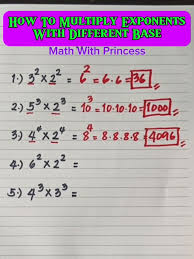 How To Multiply Exponents
With Different Base
Math With Princess
1.) 3² x 2² = 6² = 6·6 = 36
2.) 5³ x 2³ = 10³ = 10·10·10 = 1000
3.) 4⁴ x 2⁴ = 8⁴ = 8·8·8·8 = 4096
4.) 6² x 2² =
5.) 4³ x 3³ =